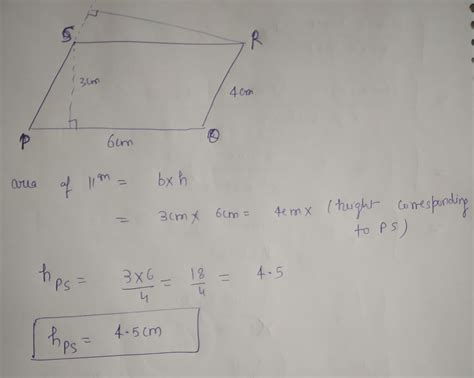 S
R
3cm
4cm
P
6cm
Q
area of ||m = b×h
= 3cm × 6cm = 4cm × (height corresponding
to PS)
hPS = 3×6/4 = 18/4 = 4.5
hPS = 4.5cm